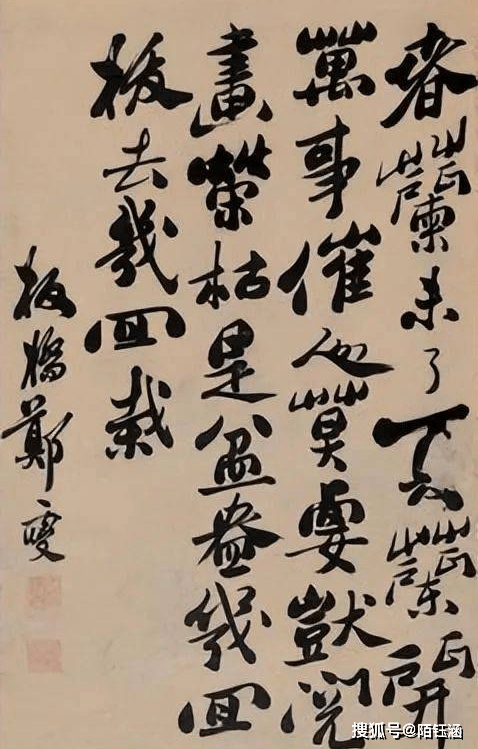 春蘭未了夏蘭開
萬事催人莫要獃閱
盡榮枯是盆盎幾回
拔去幾回栽
板橋鄭燮
搜狐号@陌钰涵